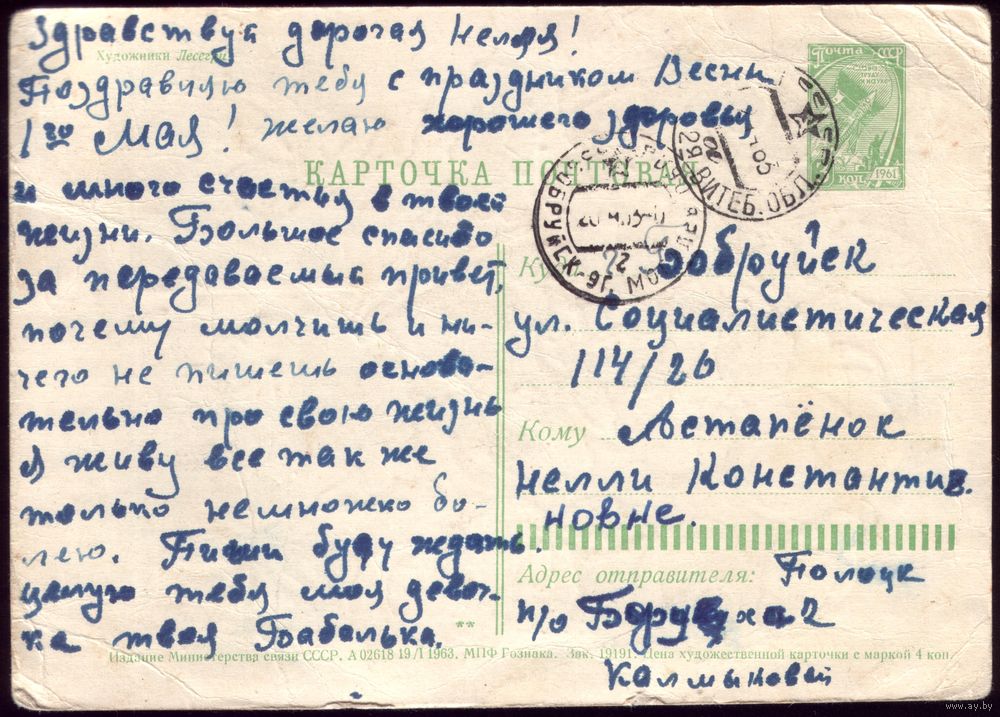 Здравствуй дорогая Нелля!
Художники Лесегри
Поздравляю тебя с праздником Весны
1го Мая! желаю хорошего здоровья
КАРТОЧКА ПОЧТОВАЯ
и много счастья в твоей
жизни. Большое спасибо
за передаваемый привет,
почему молчишь и ни-
чего не пишешь основа-
тельно про свою жизнь
Я живу все так же
только немножко бо-
лею. Пиши буду ждать.
целую тебя моя девоч-
ка твоя Бабалька.
ПОЧТА СССР
1961
КОП.
ВИТЕБ. ОБЛ.
БОБРУЙСК
Куда г. Бобруйск
ул. Социалистическая
114/26
Кому Астапёнок
Нелли Константи
новне.
Адрес отправителя: Полоцк
п/о Боровуха 2
Калмыковой
**
Издание Министерства связи СССР. А 02618 19/I 1963. МПФ Гознака. Зак. 19191. Цена художественной карточки с маркой 4 коп.
www.ay.by